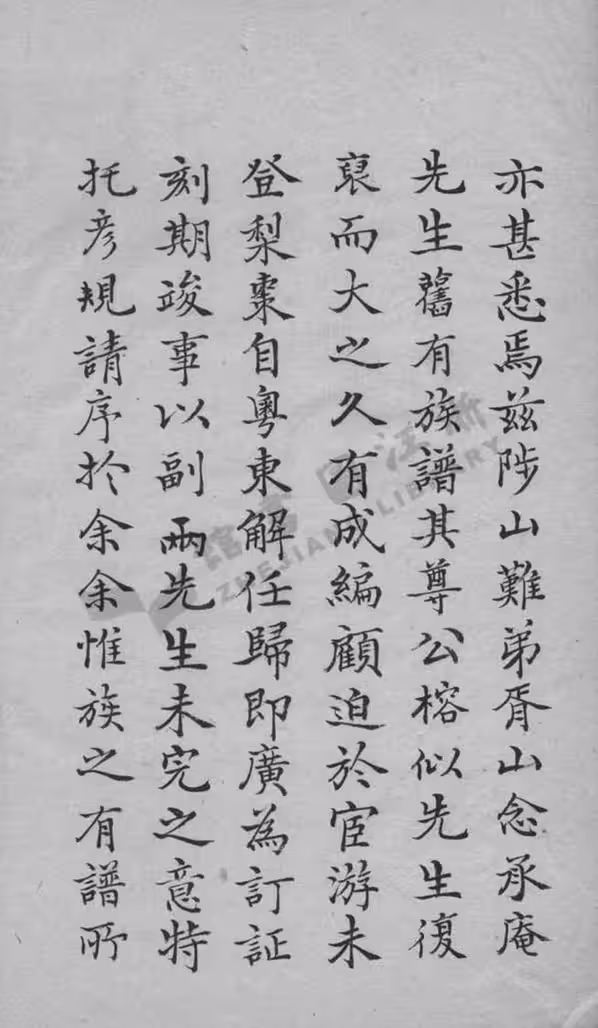 亦甚悉焉兹陟山難弟胥山念承庵
先生舊有族譜其尊公榕似先生復
裒而大之久有成編顧迫於宦游未
登梨棗自粵東解任歸即廣為訂証
刻期竣事以副兩先生未完之意特
托彥規請序於余余惟族之有譜所
浙江圖書館
ZHEJIANG LIBRARY